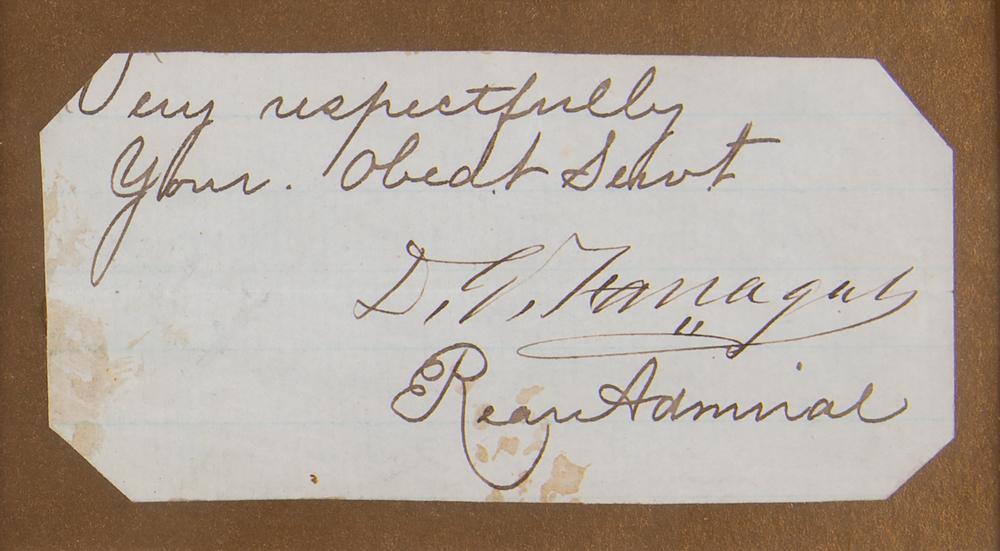 Very respectfully
Your. Obedt Servt
D. G. Farragut
Rear Admiral